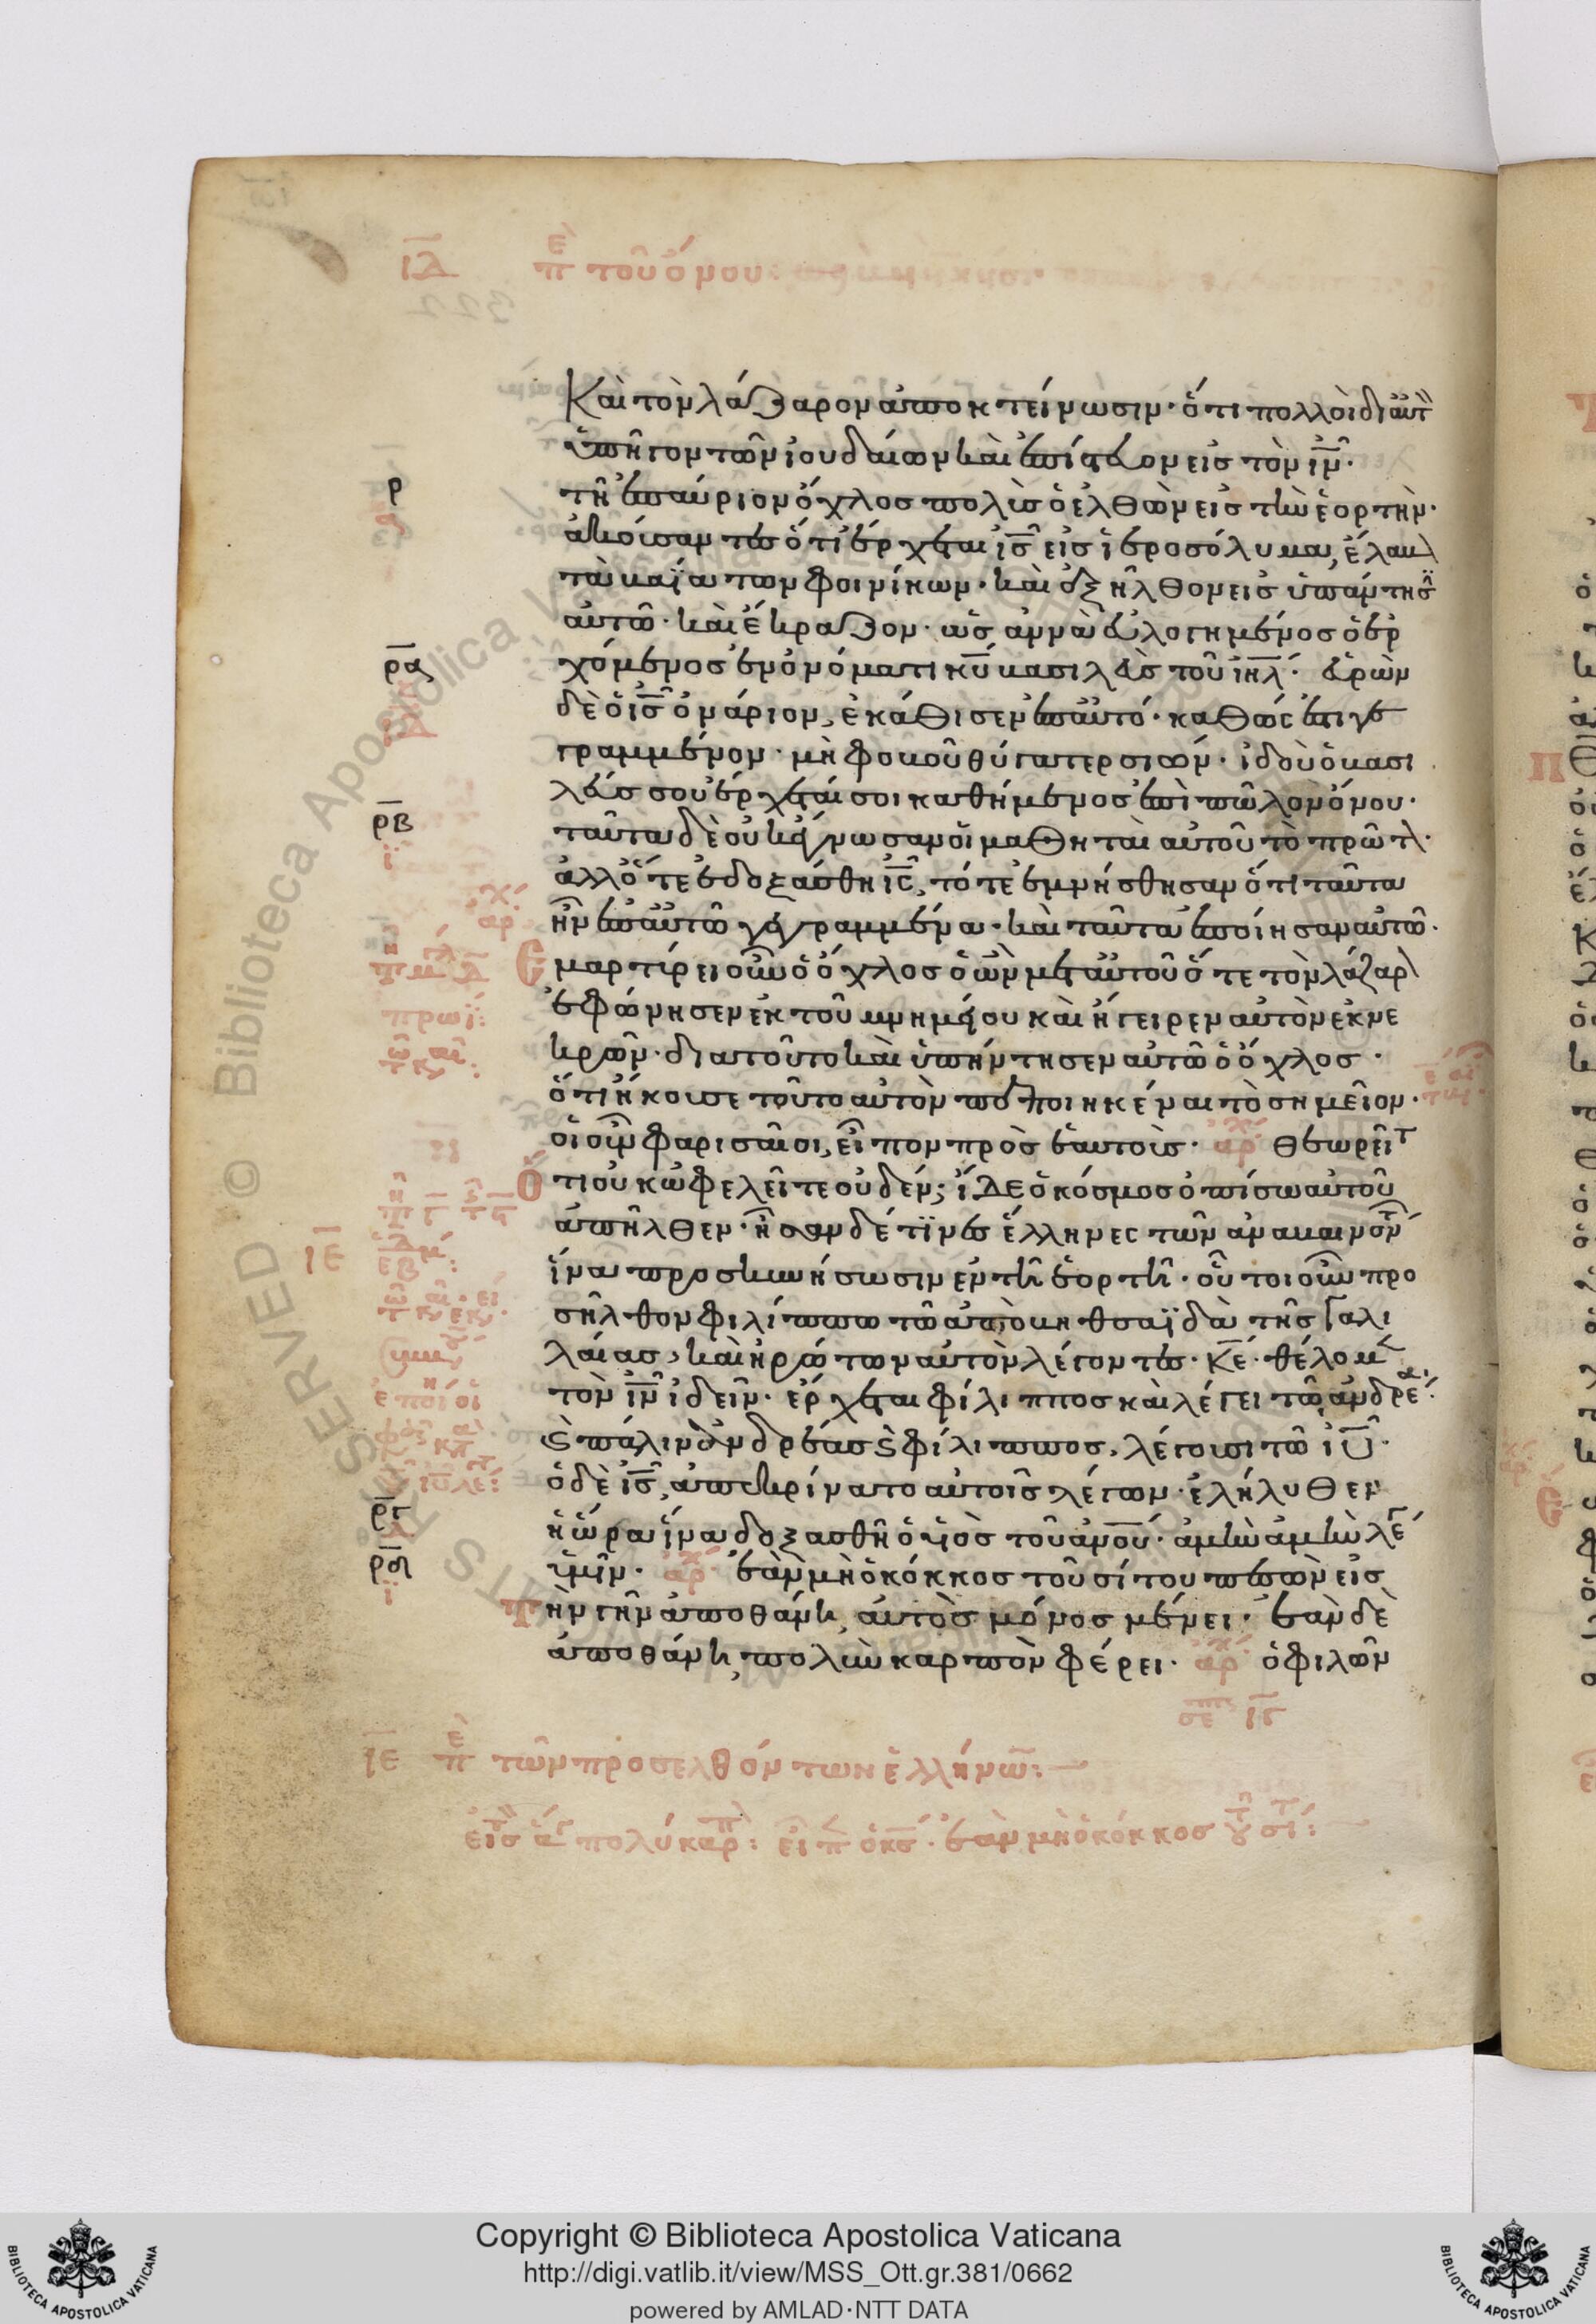 ΙΔ πε του όνου:
Καὶ τὸν λάζαρον ἀποκτείνωσιν· ὅτι πολλοὶ δι αὐτ
ὑπῆγον τῶν ἰουδαίων καὶ ἐπίστευον εἰς τὸν ἰν̅·
ρ τῆ ἐπαύριον ὄχλος πολὺς ὁ ἐλθὼν εἰς τὴν ἑορτὴν·
ἀκούσαντες ὅτι ἔρχεται ἰς̅ εἰς ἱεροσόλυμα, ἔλαβ
τὰ βαΐα τῶν φοινίκων· καὶ ἐξῆλθον εἰς ὑπάντησ
αὐτῶ· καὶ ἔκραζον· ὡς ἀννὰ εὐλογημένος ὁ ἐρ
ρα χόμενος ἐν ὀνόματι κυ̅ βασιλεὺς τοῦ ἰηλ̅· εὑρὼν
δὲ ὁ ἰς̅ ὀνάριον, ἐκάθισεν ἐπ αὐτό· καθώς ἐστι γε
γραμμένον· μὴ φοβοῦ θύγατερ σιών· ἰδοὺ ὁ βασι
λεύς σου ἔρχεταί σοι καθήμενος ἐπὶ πῶλον ὄνου·
ρβ ταῦτα δὲ οὐκ ἔγνωσαν οἱ μαθηταὶ αὐτοῦ τὸ πρῶτ·
ἀλλ ὅτε ἐδοξάσθη ἰς̅, τότε ἐμνήσθησαν ὅτι ταῦτα
ἦν ἐπ αὐτῶ γεγραμμένα· καὶ ταῦτα ἐποίησαν αὐτῶ·
Ε μαρτύρει οὖν ὁ ὄχλος ὁ ὢν μετ αὐτοῦ ὅτε τὸν λάζαρ
ἐφώνησεν ἐκ τοῦ μνημείου καὶ ἤγειρεν αὐτὸν ἐκ νε
κρῶν· διατοῦτο καὶ ὑπήντησεν αὐτῶ ὁ ὄχλος·
ὅτι ἤκουσε τοῦτο αὐτὸν πεποιηκέναι τὸ σημεῖον·
οἱ οὖν φαρισαῖοι, εἶπον πρὸς ἑαυτούς· αρχ θεωρεῖτ
Ὅ τι οὐκ ὠφελεῖτε οὐδέν; ἴδε ὁ κόσμος ὀπίσω αὐτοῦ
ἀπῆλθεν· ἦσαν δέ τινες ἕλληνες τῶν ἀναβαινόντ
ΙΕ ἵνα προσκυνήσωσιν ἐν τῆ ἑορτῆ· οὗτοι οὖν προ
σῆλθον φιλίππω τῶ ἀπὸ βηθσαϊδὰ τῆς γαλι
λαίας, καὶ ἠρώτων αὐτὸν λέγοντες· κε̅· θέλομ
τὸν ἰν̅ ἰδεῖν· ἔρχεται φίλιππος καὶ λέγει τῶ ἀνδρέα·
ϗ πάλιν ἀνδρέας ϗ φίλιππος, λέγουσι τῶ ἰυ̅·
ὁ δὲ ἰς̅, ἀπεκρίνατο αὐτοῖς λέγων· ἐλήλυθεν
ργ ἡ ὥρα ἵνα δοξασθῆ ὁ υἱὸς τοῦ ἀνου̅· ἀμὴν ἀμὴν λέγ
ρδ ὑμῖν· αρχ ἐὰν μὴ ὁ κόκκος τοῦ σίτου πεσὼν εἰς
τ ὴν γῆν ἀποθάνη, αὐτὸς μόνος μένει· ἐὰν δὲ
ἀποθάνη, πολὺν καρπὸν φέρει· αρχ ὁ φιλῶν
ΙΕ πε τῶν προσελθόντων ἑλλήνω̅:
εἰς ἁγ πολύκαρπ: εἶπ ὁ κς̅· ἐὰν μὴ ὁ κόκκος τοῦ σίτ:
Copyright © Biblioteca Apostolica Vaticana
http://digi.vatlib.it/view/MSS_Ott.gr.381/0662
powered by AMLAD·NTT DATA